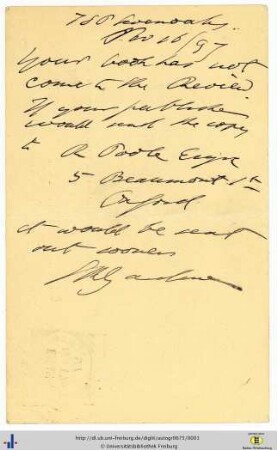 7 S P Sevenoaks.
Nov 16/97
Your book has not
come to the Review.
If your publisher
would send the copy
to R Poole Esqre
5 Beaumont St
Oxford
it would be sent
out sooner
SRGardiner
http://dl.ub.uni-freiburg.de/diglit/autogr0671/0003
© Universitätsbibliothek Freiburg